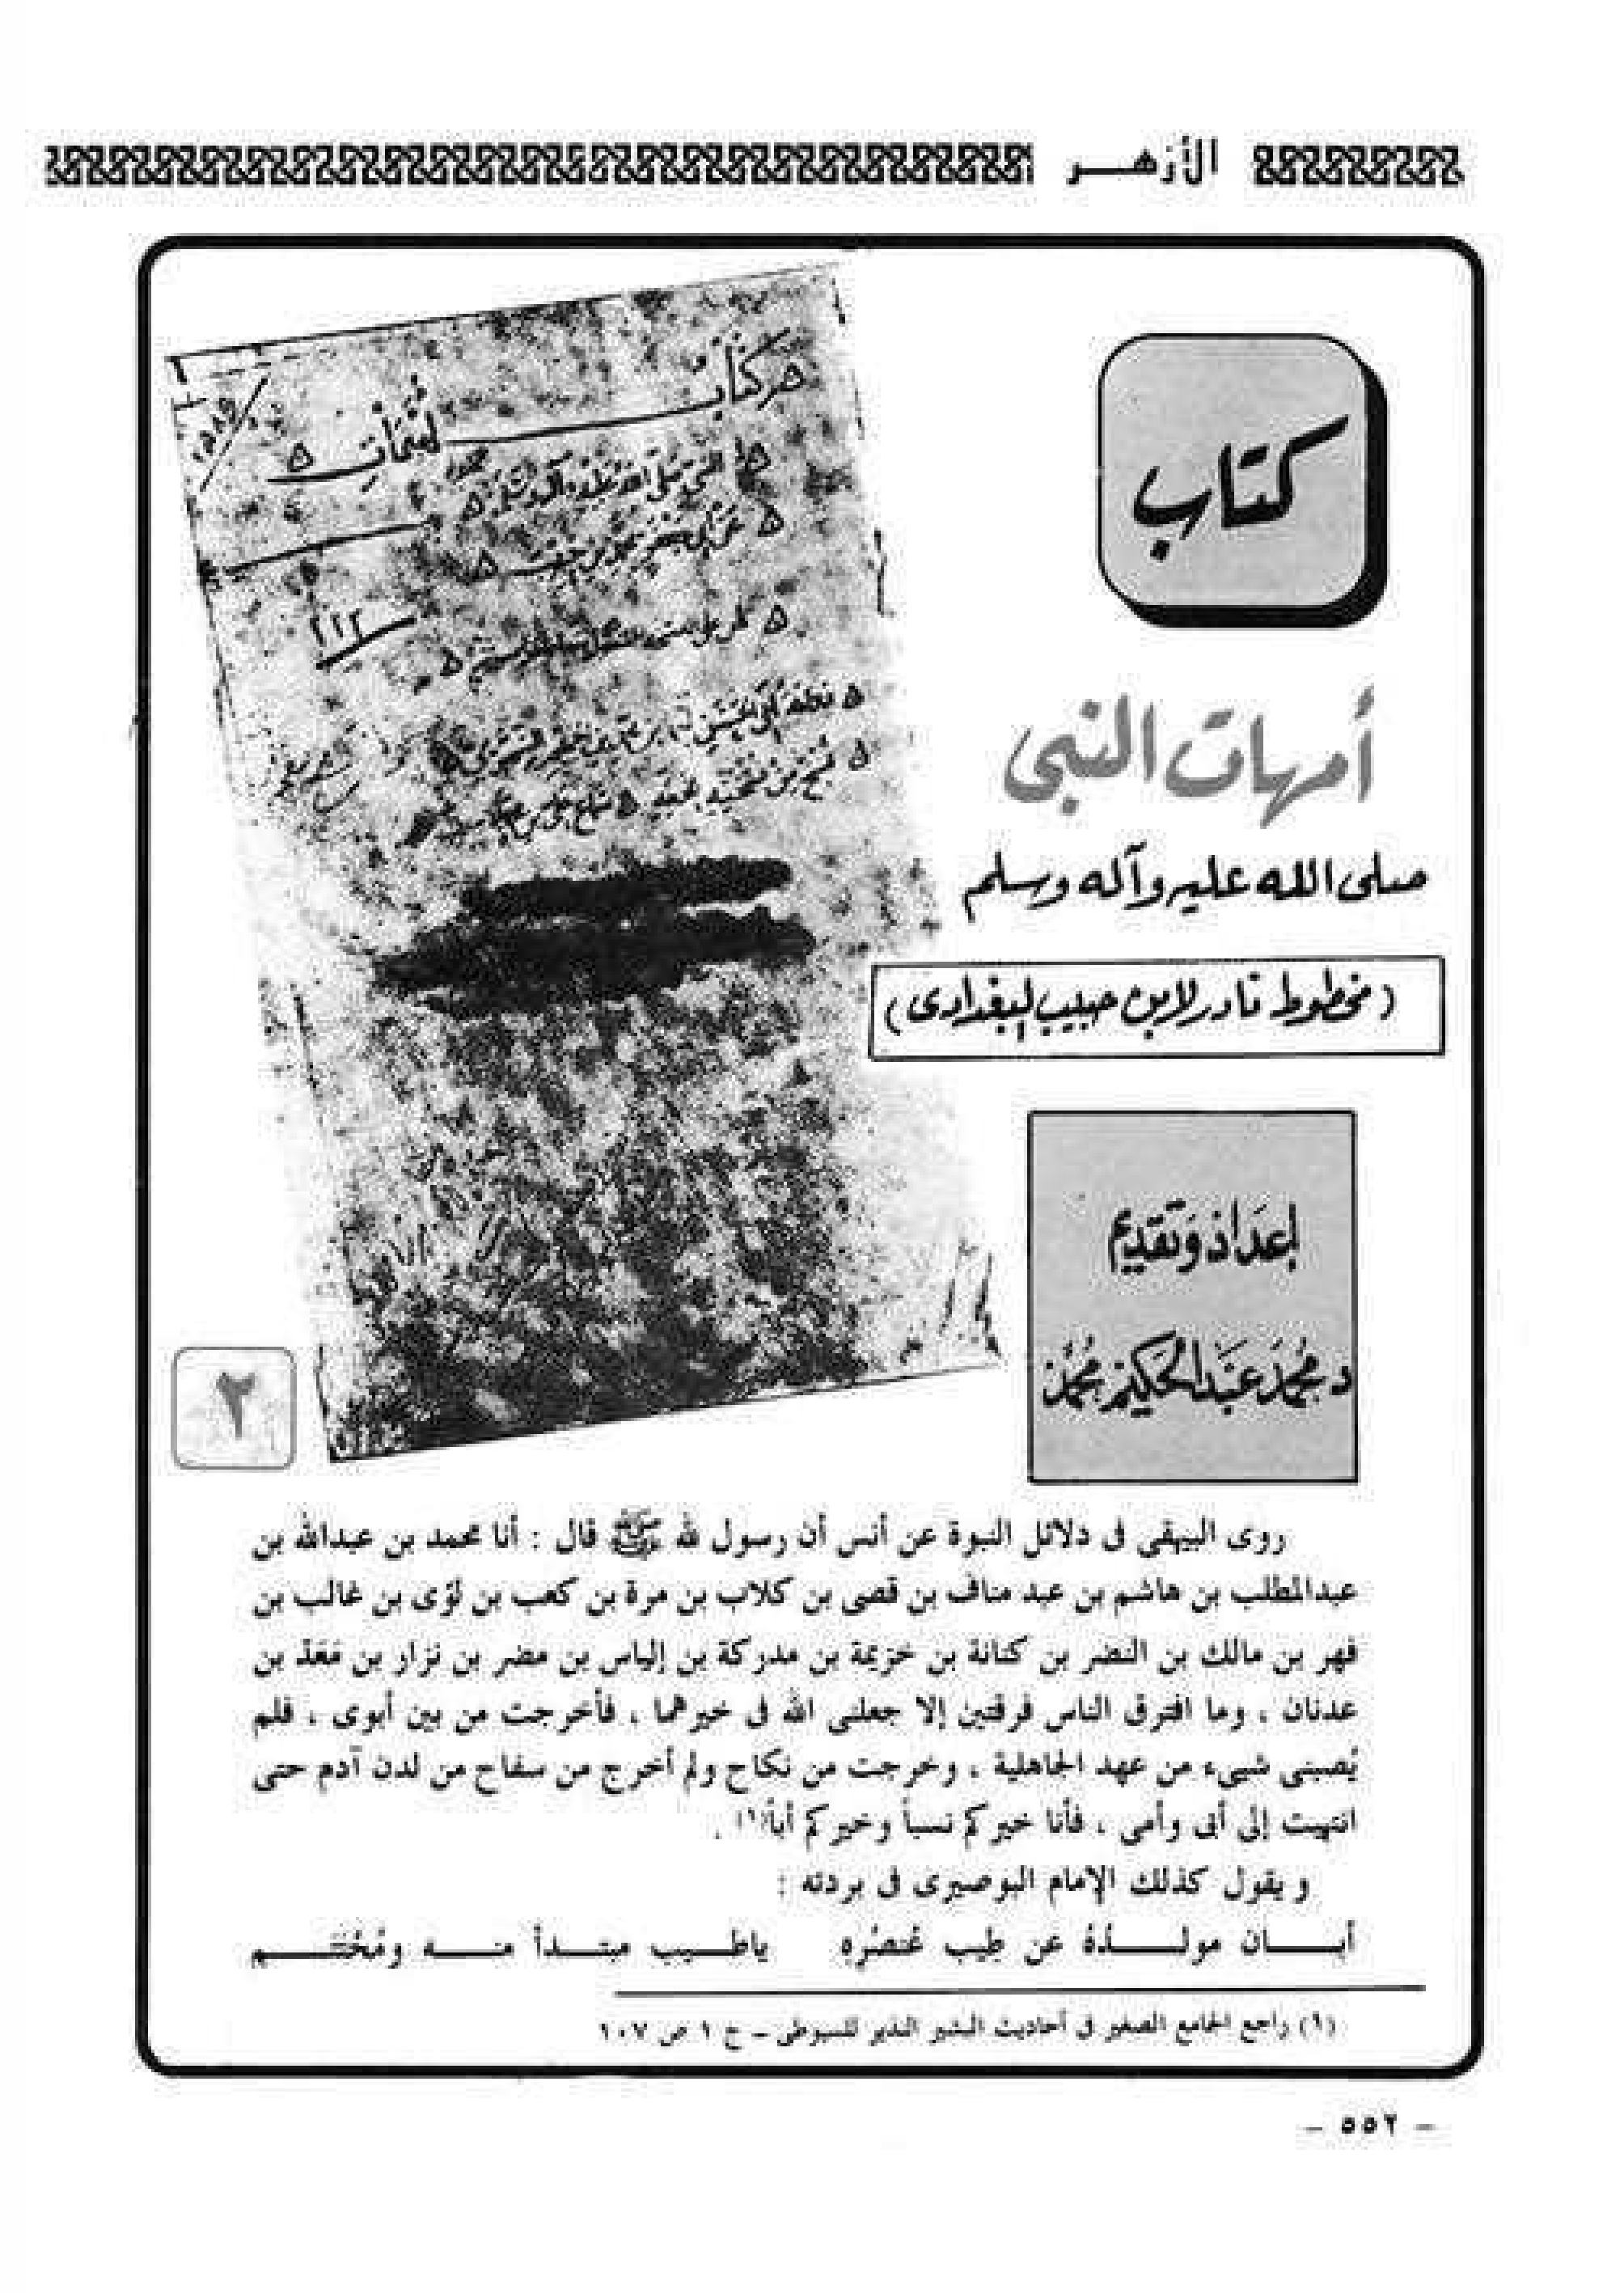 الأزهـــر
كتاب
أمهات النبى
صلى الله عليه وآله وسلم
(مخطوط نادر لابن حبيب البغدادى)
إعداد وتقديم
د. محمد عبد الحكيم محمد
٢
روى البيهقى فى دلائل النبوة عن أنس أن رسول لله ﷺ قال : أنا محمد بن عبدالله بن
عبدالمطلب بن هاشم بن عبد مناف بن قصى بن كلاب بن مرة بن كعب بن لؤى بن غالب بن
فهر بن مالك بن النضر بن كنانة بن خزيمة بن مدركة بن إلياس بن مضر بن نزار بن مَعَدّ بن
عدنان ، وما افترق الناس فرقتين إلا جعلنى الله فى خيرهما ، فأخرجت من بين أبوى ، فلم
يُصبنى شيىء من عهد الجاهلية ، وخرجت من نكاح ولم أخرج من سفاح من لدن آدم حتى
انتهيت إلى أبى وأمى ، فأنا خيركم نسباً وخيركم أباً(١) .
و يقول كذلك الإمام البوصيرى فى بردته :
أبـــان مولـــدُهُ عن طِيب عُنصُرِهِ ياطـــيب مبتـــدأ منـــه ومُخْتَتـــم
(١) راجع الجامع الصغير فى أحاديث البشير النذير للسيوطى – ج ١ ص ١٠٧
– ٥٥٢ –